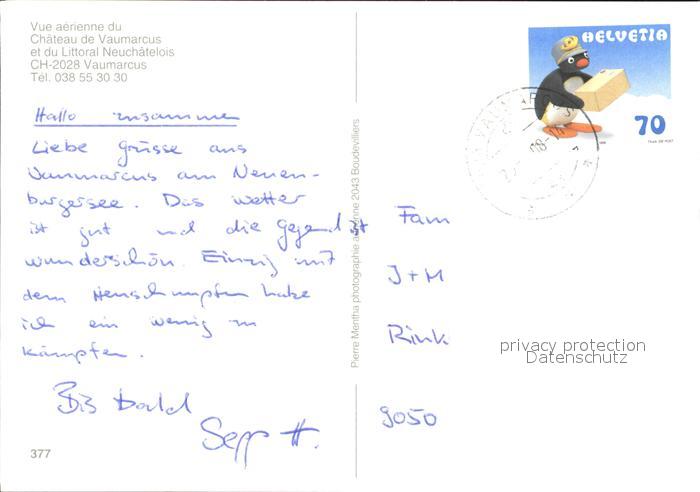 Vue aérienne du
Château de Vaumarcus
et du Littoral Neuchâtelois
CH-2028 Vaumarcus
Tél. 038 55 30 30
Hallo zusammen
Liebe Grüsse aus
Vaumarcus am Neuen-
burgersee. Das Wetter
ist gut und die Gegend ist
wunderschön. Einzig mit
dem Heuschnupfen habe
ich ein wenig zu
kämpfen.
Bis bald
Sepp H.
377
Pierre Mentha photographie aérienne 2043 Boudevilliers
HELVETIA
70
Fam
J+M
Rink
9050
privacy protection
Datenschutz